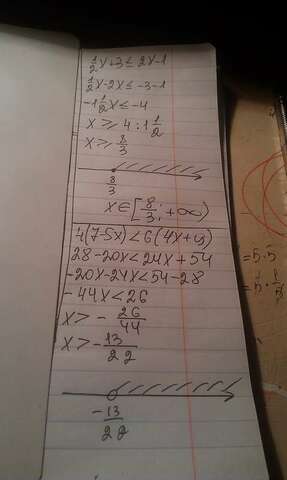 ½x+3≤2x-1
½x-2x≤-3-1
-1½x≤-4
x≥4:1½
x≥8/3
8/3
x∈[8/3;+∞)
4(7-5x)<6(4x+9)
28-20x<24x+54
-20x-24x<54-28
-44x<26
x>-26/44
x>-13/22
-13/22
=5·5